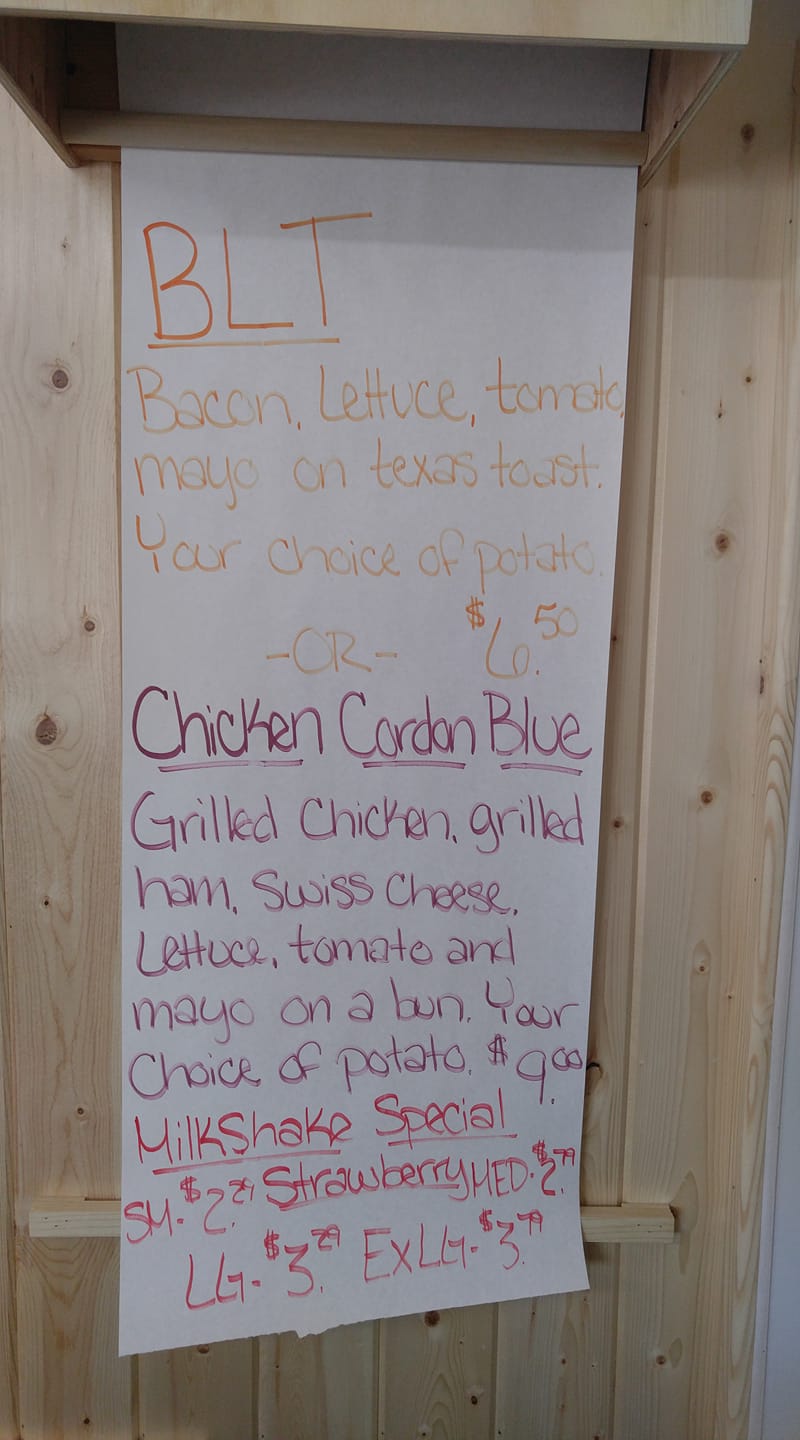 BLT
Bacon, Lettuce, tomato,
mayo on texas toast.
Your choice of potato.
-OR- $6.50
Chicken Cordon Blue
Grilled Chicken, grilled
ham, Swiss Cheese,
Lettuce, tomato and
mayo on a bun. Your
Choice of potato. $9.00
MilkShake Special
SM. $2.29 Strawberry MED. $2.79
LG- $3.29 ExLG- $3.79